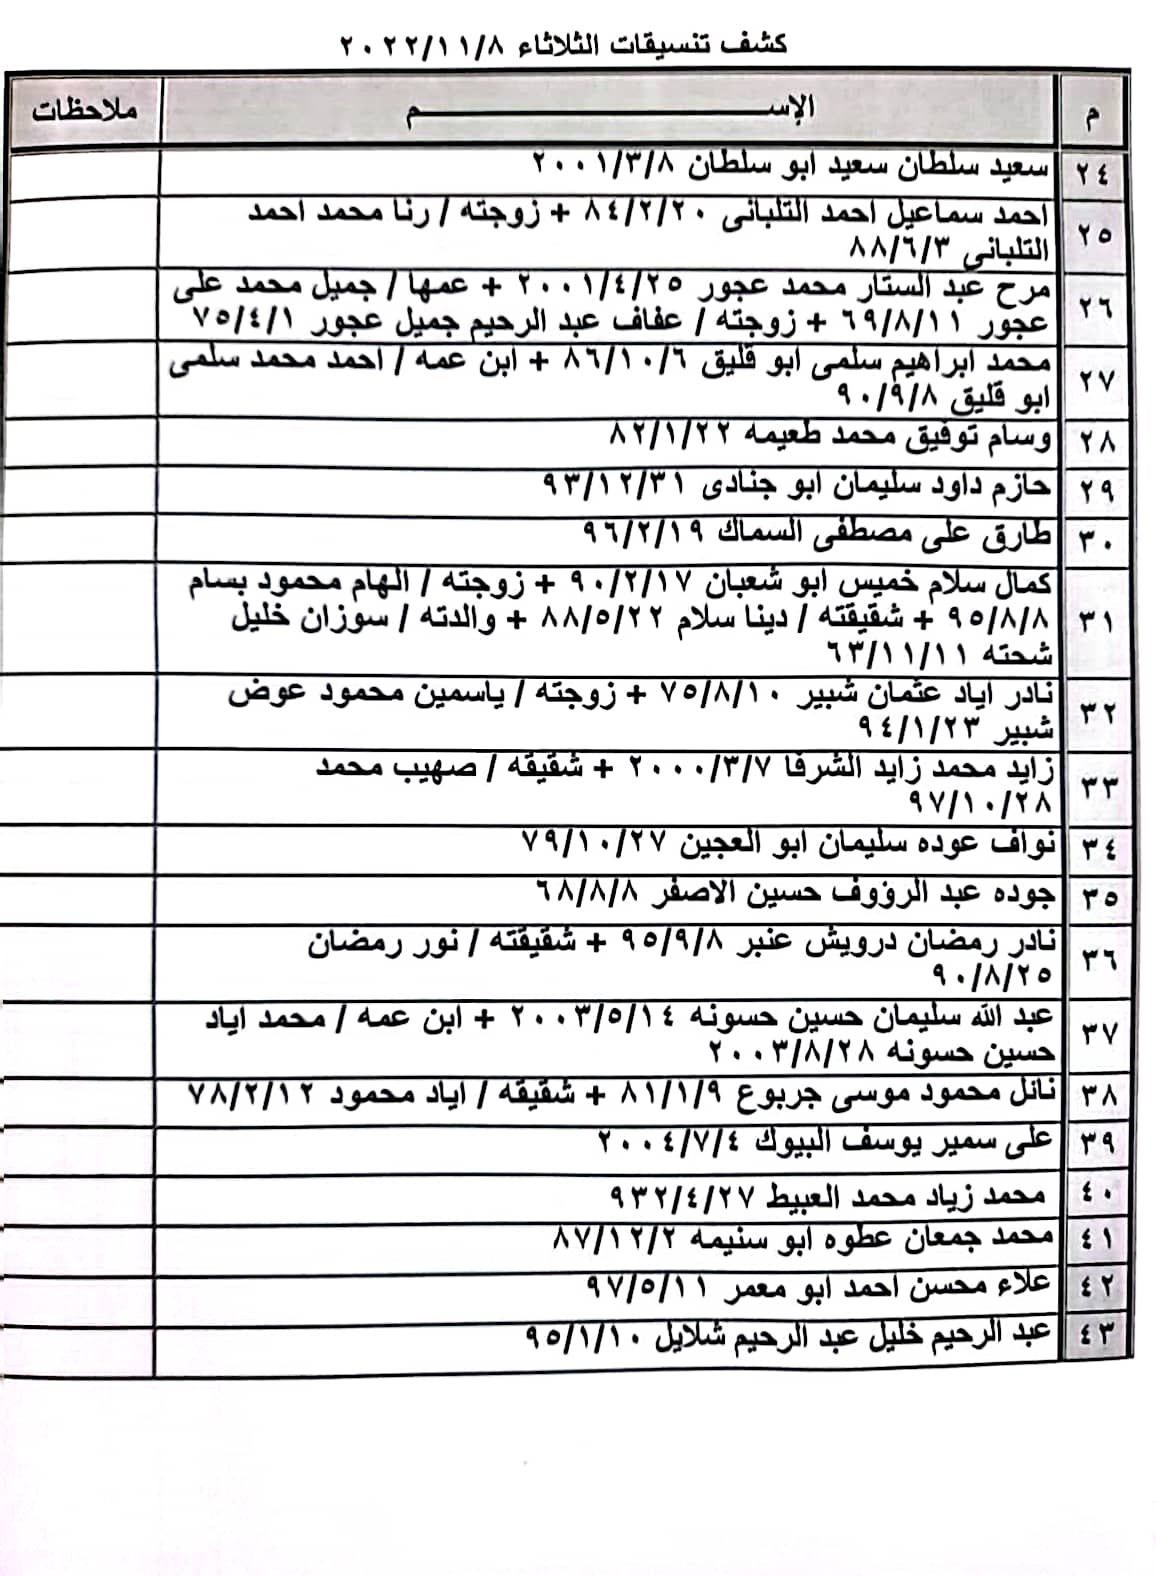 كشف تنسيقات الثلاثاء ٢٠٢٢/١١/٨
م الإســـــــــــــم ملاحظات
٢٤ سعيد سلطان سعيد ابو سلطان ٢٠٠١/٣/٨
٢٥ احمد سماعيل احمد التلبانى ٨٤/٢/٢٠ + زوجته / رنا محمد احمد
التلبانى ٨٨/٦/٣
٢٦ مرح عبد الستار محمد عجور ٢٠٠١/٤/٢٥ + عمها / جميل محمد على
عجور ٦٩/٨/١١ + زوجته / عفاف عبد الرحيم جميل عجور ٧٥/٤/١
٢٧ محمد ابراهيم سلمى ابو قليق ٨٦/١٠/٦ + ابن عمه / احمد محمد سلمى
ابو قليق ٩٠/٩/٨
٢٨ وسام توفيق محمد طعيمه ٨٢/١/٢٢
٢٩ حازم داود سليمان ابو جنادى ٩٣/١٢/٣١
٣٠ طارق على مصطفى السماك ٩٦/٢/١٩
٣١ كمال سلام خميس ابو شعبان ٩٠/٢/١٧ + زوجته / الهام محمود بسام
٩٥/٨/٨ + شقيقته / دينا سلام ٨٨/٥/٢٢ + والدته / سوزان خليل
شحته ٦٣/١١/١١
٣٢ نادر اياد عثمان شبير ٧٥/٨/١٠ + زوجته / ياسمين محمود عوض
شبير ٩٤/١/٢٣
٣٣ زايد محمد زايد الشرفا ٢٠٠٠/٣/٧ + شقيقه / صهيب محمد
٩٧/١٠/٢٨
٣٤ نواف عوده سليمان ابو العجين ٧٩/١٠/٢٧
٣٥ جوده عبد الرؤوف حسين الاصفر ٦٨/٨/٨
٣٦ نادر رمضان درويش عنبر ٩٥/٩/٨ + شقيقته / نور رمضان
٩٠/٨/٢٥
٣٧ عبد الله سليمان حسين حسونه ٢٠٠٣/٥/١٤ + ابن عمه / محمد اياد
حسين حسونه ٢٠٠٣/٨/٢٨
٣٨ نائل محمود موسى جربوع ٨١/١/٩ + شقيقه / اياد محمود ٧٨/٢/١٢
٣٩ على سمير يوسف البيوك ٢٠٠٤/٧/٤
٤٠ محمد زياد محمد العبيط ٩٣٢/٤/٢٧
٤١ محمد جمعان عطوه ابو سنيمه ٨٧/١٢/٢
٤٢ علاء محسن احمد ابو معمر ٩٧/٥/١١
٤٣ عبد الرحيم خليل عبد الرحيم شلايل ٩٥/١/١٠